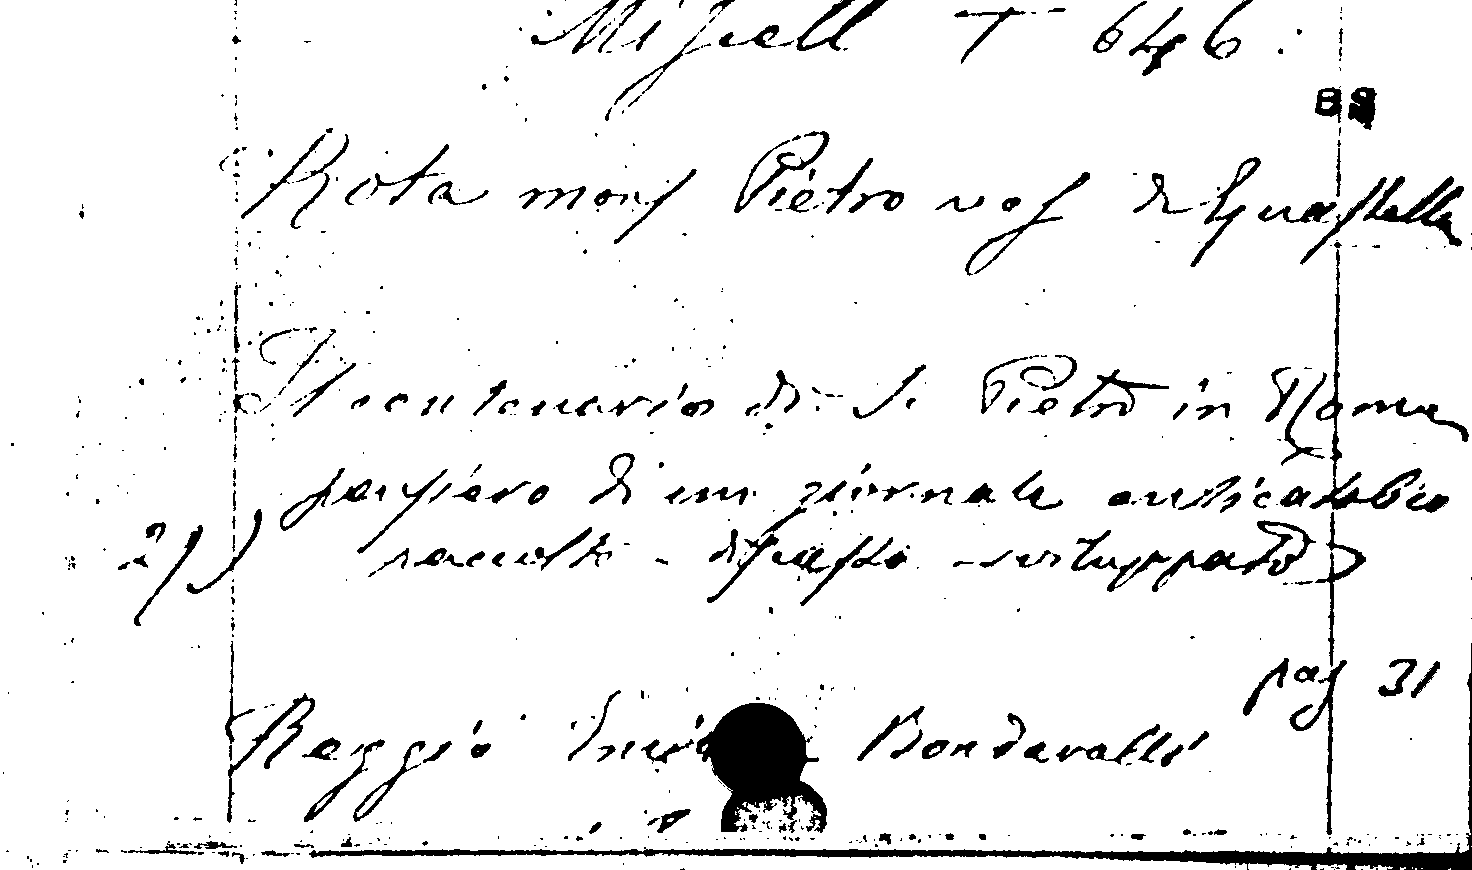 Miscell T 646
BS
Rota mons Pietro vesc di Guastalla
Il centenario di S. Pietro in Roma
pensiero di un giornale anticattolico
2/) raccolto - - sviluppato
pag 31
Reggio Bondavalli